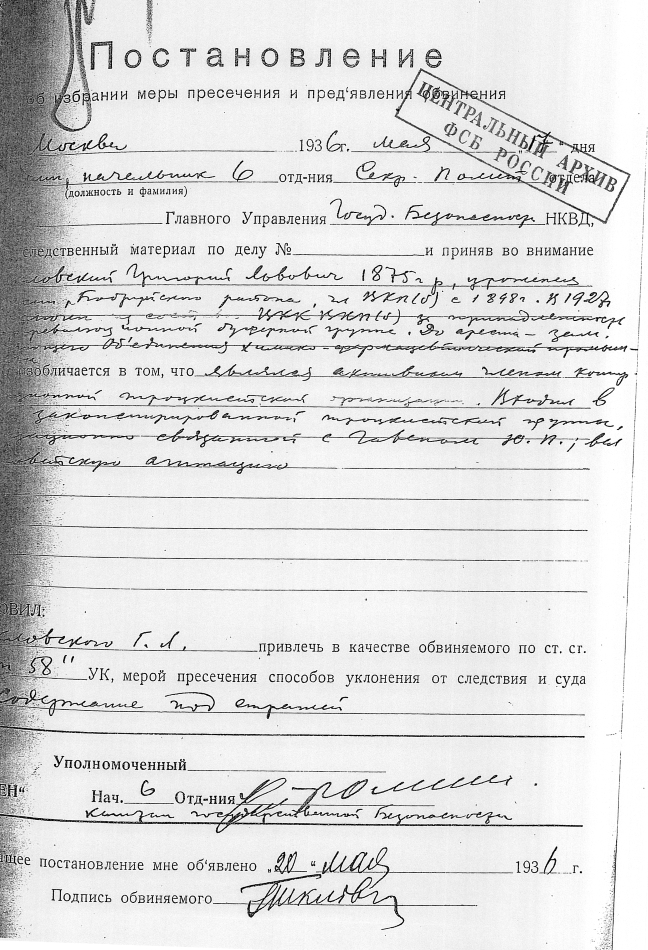 Постановление
об избрании меры пресечения и пред‘явления обвинения
ЦЕНТРАЛЬНЫЙ АРХИВ
ФСБ РОССИИ
Москва 1936г. мая 17" дня
начальник 6 отд-ния Секр. Полит отдела
(должность и фамилия)
Главного Управления Госуд. Безопасности НКВД,
следственный материал по делу № и приняв во внимание
ловский Григорий Львович 1875 г р, уроженец
Бобруйского района, чл ВКП(б) с 1898г. В 1927
ЦКК ВКП(б) за принадлежность
буферной группе. До ареста – зам.
Об'единения химико-фармацевтической промыш-
изобличается в том, что являлся активным членом контр
ционной троцкистской организации. Входил в
законспирированной троцкистской группы,
связанной с Гавеном Ю. П., вел
ветскую агитацию
ОВИЛ:
ловского Г. Л. привлечь в качестве обвиняемого по ст. ст.
58" УК, мерой пресечения способов уклонения от следствия и суда
Содержание под стражей
Уполномоченный
ЕН“ Нач. 6 Отд-ния
капитан государственной Безопасности
щее постановление мне об‘явлено „20“ мая 1936 г.
Подпись обвиняемого